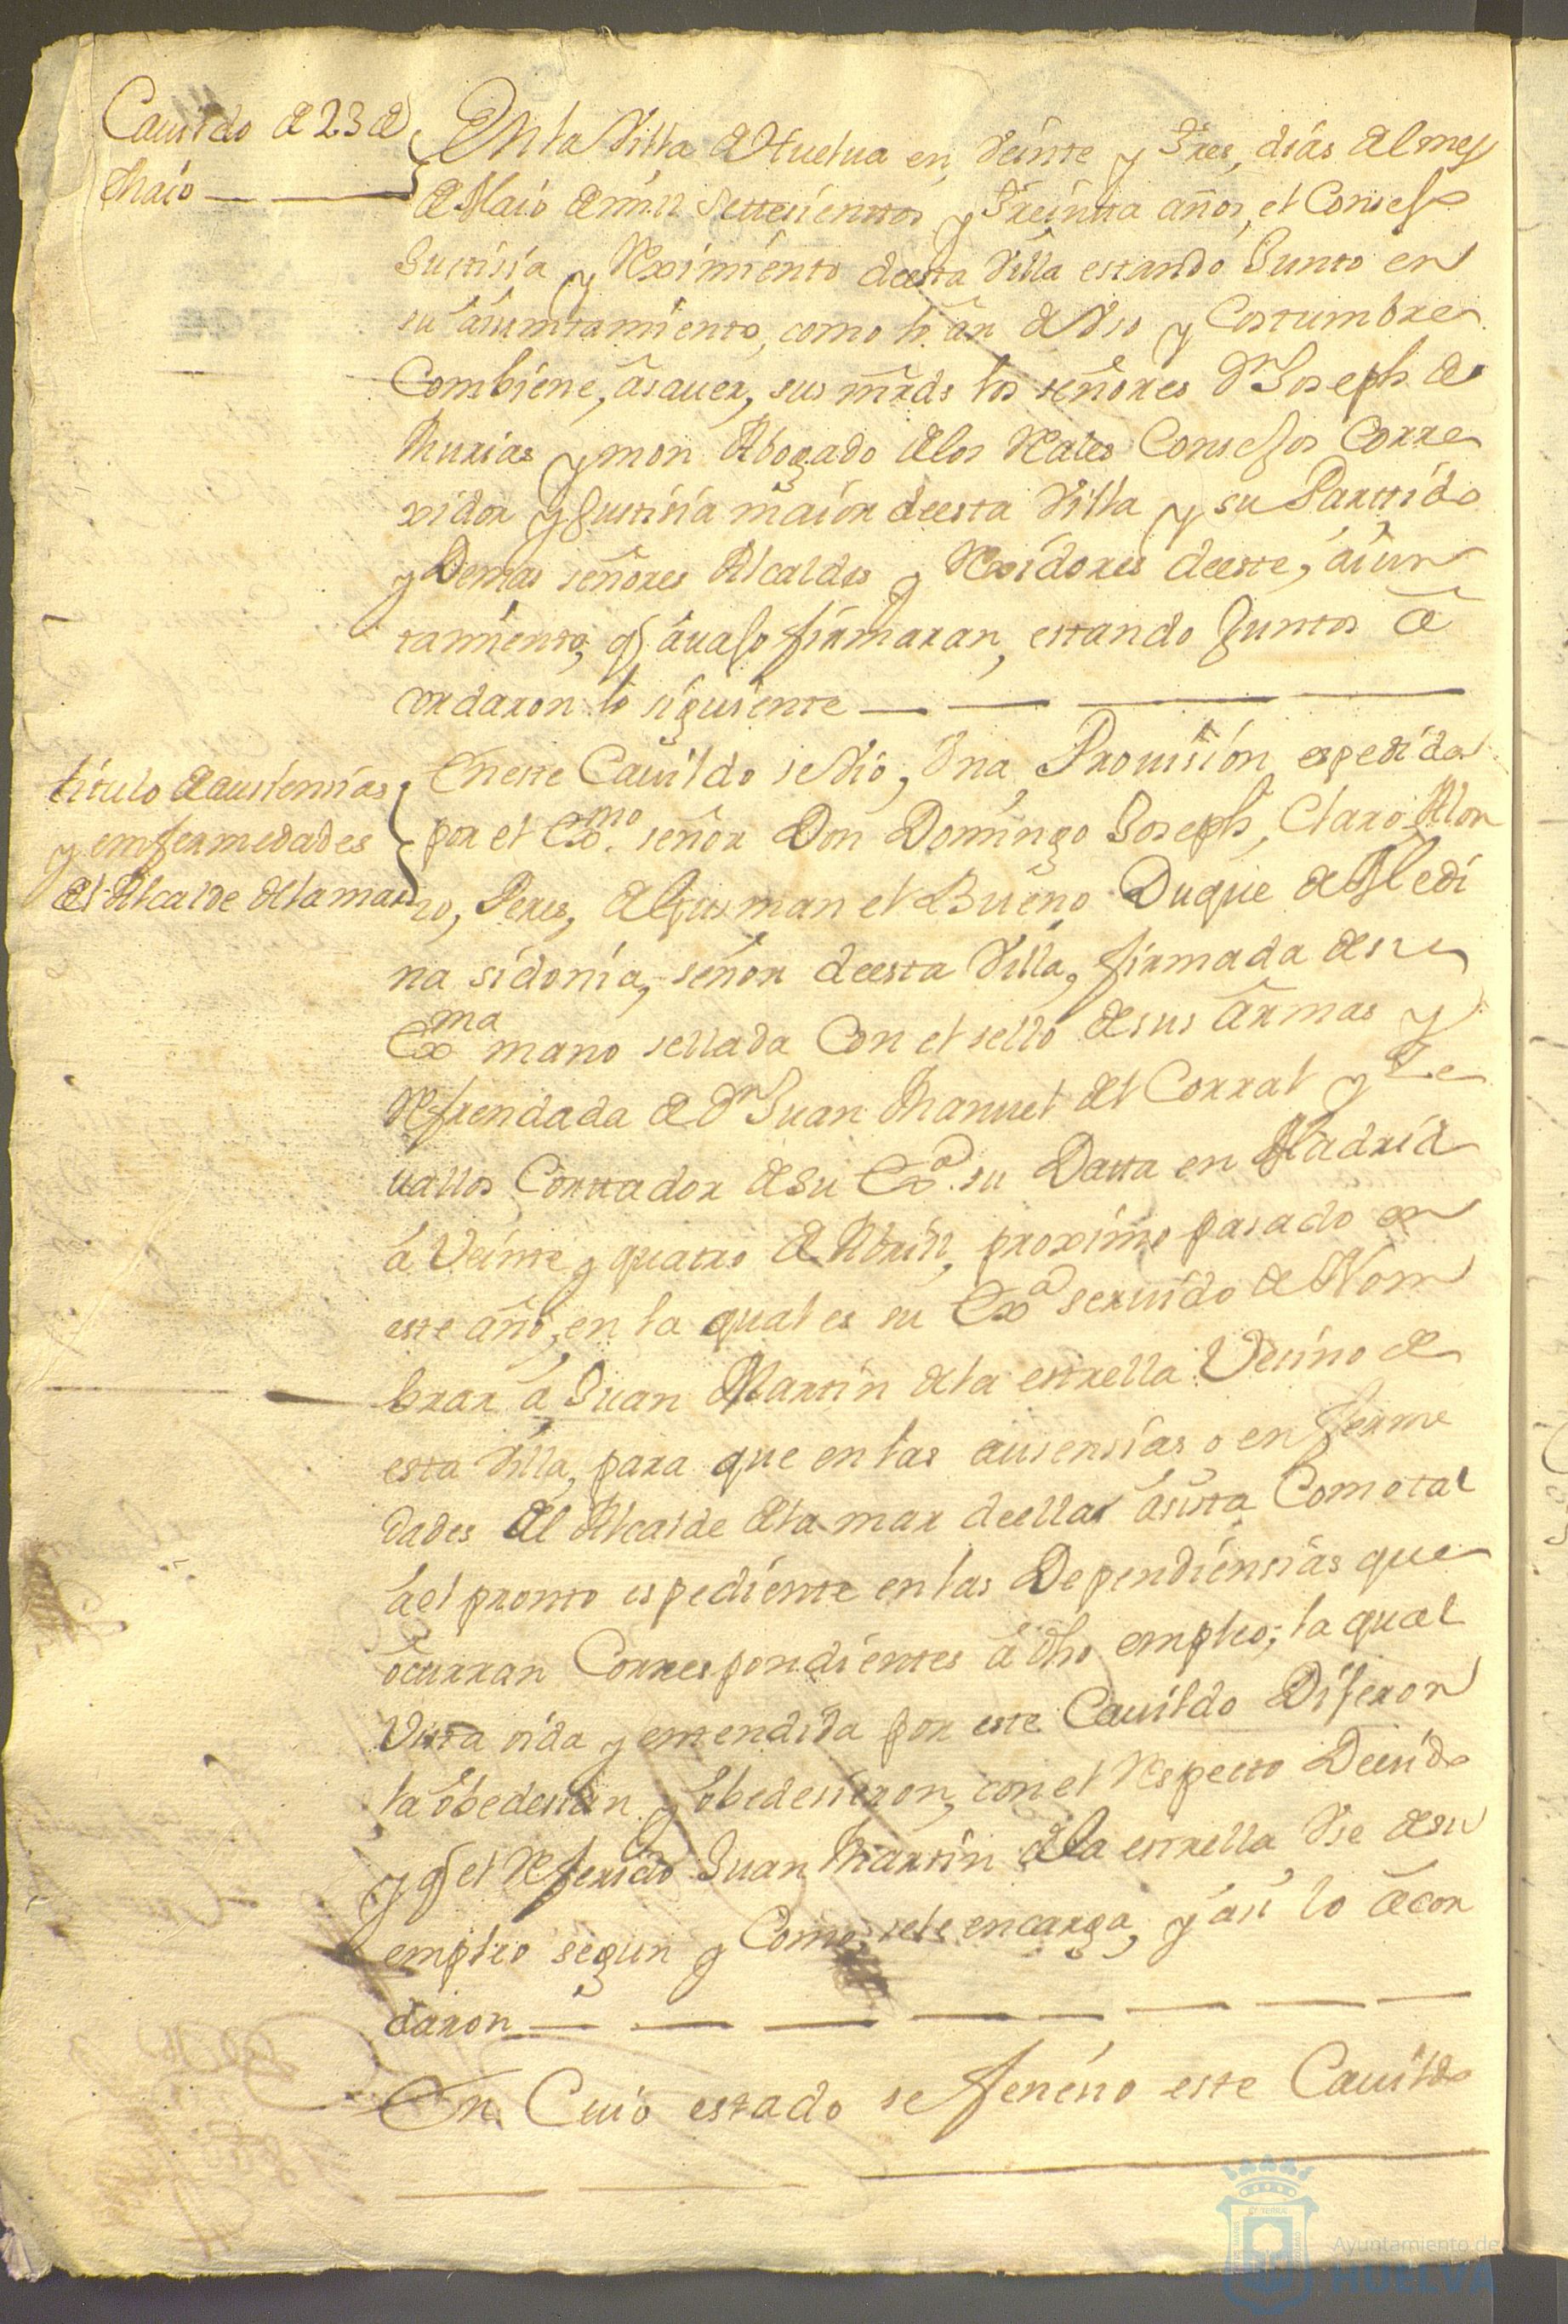 Cauildo de 23 de
Maio
En la Villa de Huelua en Veinte y Tres, dias del mes
de Maio de mill Settesienttos y Treintta años, el Consejo
Justisia y Reximiento deesta Villa estando Junto en
su aiuntamiento, como lo an de Vso y Costumbre
Combiene, asauer, sus mrds los señores Dn Joseph de
Murias y mon Abogado de los Rales Consejos Corre
xidor y Justisia maior deesta Villa y su Parttido
y Demas señores Alcaldes y Rexidores deeste, aiun
tamiento, q auajo firmaran, estando Juntos a
cordaron lo siguiente
titulo de ausiensias
y emfermedades
del Alcalde de la mar
En este Cauildo se Vio, Vna, Prouision espedida
por el Exmo. señor Don Domingo Joseph, Claro Alon
so, Peres, de Gusman el Bueno Duque de Medi
na sidonia, señor deesta Villa, firmada de su
Exma mano sellada Con el sello de sus armas y
Refrendada de Dn Juan Manuel del Corral y Ze
uallos Conttador de Su Exa. su Datta en Madrid
a Veinte y quatro de Abrill, proximo pasado en
este año, en la qual es su Exa seruido de Nom
brar a Juan Martin de la estrella Vesino de
esta Villa, para que en las ausensias o enferme
dades del Alcalde de la mar deella asista Como tal
a el pronto espediente en las Dependiensias que
ocurran Correspondientes a dho empleo; la qual
Vista oida y entendida por este Cauildo Dijeron
la obedesian y obedesieron, con el Respecto Deuido
y q el Referido Juan Martin de la estrella Vse de su
empleo segun y Como se le encarga, y asi lo acor
daron
En Cuio estado se feneno este Cauildo
Ayuntamiento de
HUELVA